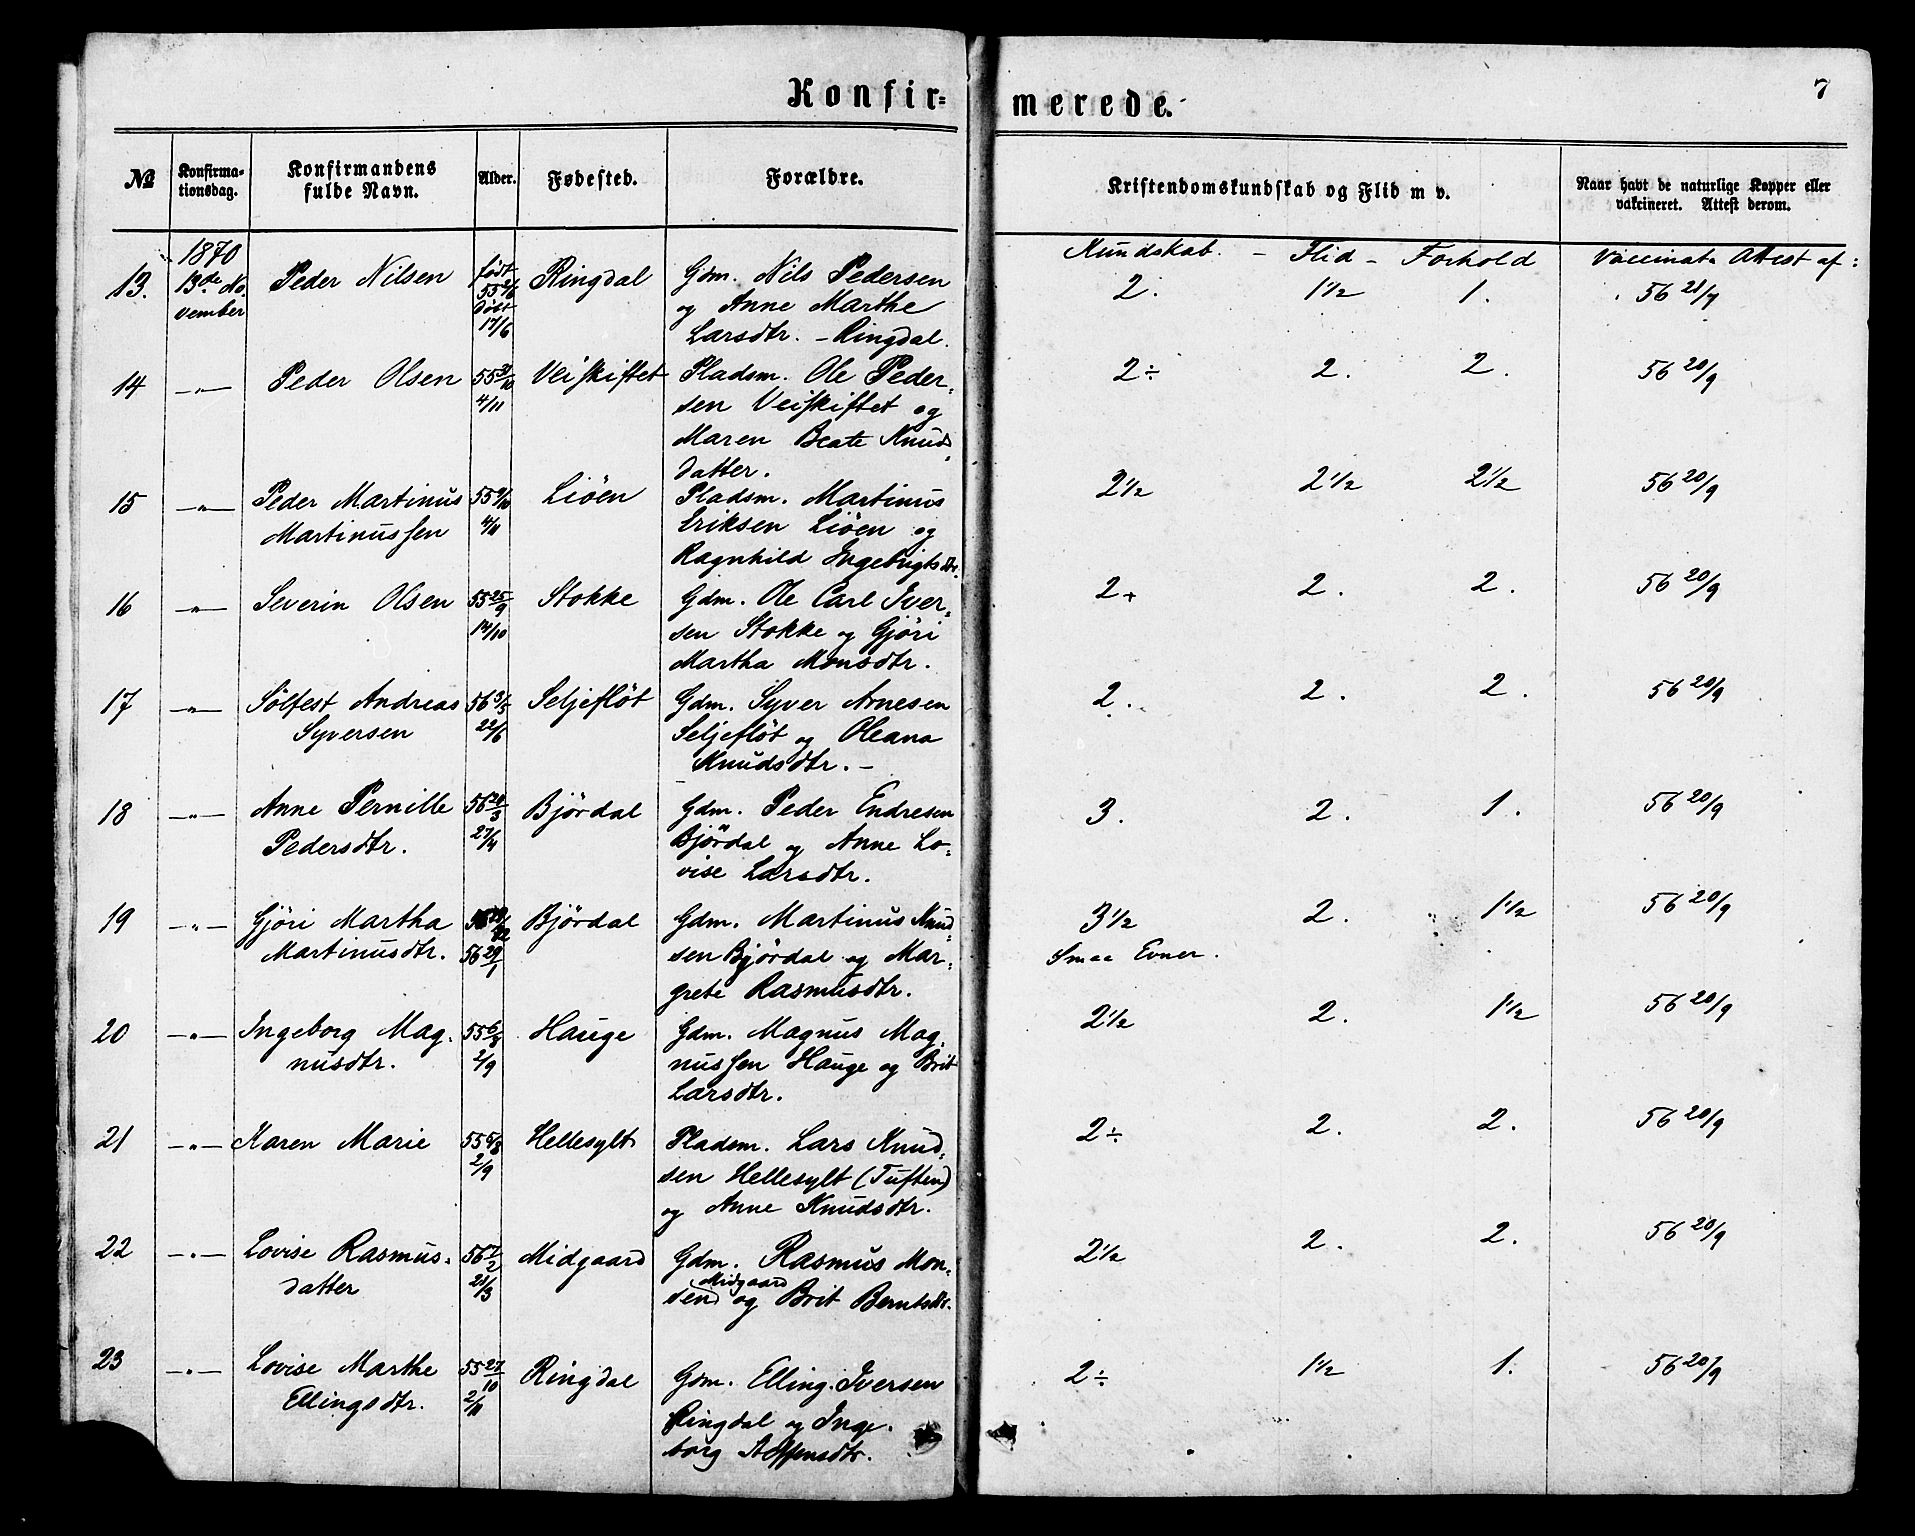 Konfir=
merede.
7
No
Konfirma-
tionsdag.
Konfirmandens
fulde Navn.
Alder.
Fødested.
Forældre.
Kristendomskundskab og Flid m v.
Naar havt de naturlige Kopper eller
vakcineret. Attest derom.
1870
Kundskab. - Flid - Forhold
Vaccinat. Attest af:
13. 13de No- Peder Nilsen født Ringdal Gdm. Nils Pedersen 2. 1½ 1. 56
vember døbt og Anne Marthe
17/6 Larsdtr. - Ringdal.
14 -"- Peder Olsen 55 Veiskiftet Pladsm. Ole Peder- 2÷ 2. 2. 56 20/9
4/11 sen Veiskiftet og
Maren Beate Knuds
datter.
15 -"- Peder Martinus 55 Liöen Pladsm. Martinus 2½ 2½ 56 20/9
Martinussen 4/11 Eriksen Liöen og
Ragnhild Ingebrigtsdtr.
16 -"- Severin Olsen 55 25/9 Stokke Gdm. Ole Carl Iver- 2+ 2. 2. 56 20/9
14/10 sen Stokke og Gjöri
Martha Monsdtr.
17 -"- Sölfest Andreas 56 3/5 Seljeflöt Gdm. Syver Arnesen 2. 2. 2. 56 20/9
Syversen 22/6 Seljeflöt og Oleana
Knudsdtr. -
18 -"- Anne Pernille 56 Björdal Gdm. Peder Endresen 3. 2. 1. 56 20/9
Pedersdtr. 27/4 Björdal og Anne Lo-
vise Larsdtr.
19 -"- Gjöri Martha Björdal Gdm. Martinus Knud- 3½ 2. 1½ 56 20/9
Martinusdtr. 56 29/1 sen Björdal og Mar- Smaa Evner.
grete Rasmusdtr.
20 -"- Ingeborg Mag- 55 6/8 Hauge Gdm. Magnus Mag- 2½ 2. 1½ 56 20/9
nusdtr. 2/9 nussen Hauge og Brit
Larsdtr.
21 -"- Karen Marie 55 Hellesylt Pladsm. Lars Knud- 2÷ 2. 2. 56 20/9
2/9 sen Hellesylt (Tuften)
og Anne Knudsdtr.
22 -"- Lovise Rasmus- 56 7/2 Midgaard Gdm. Rasmus Mon- 2½ 2. 2. 56 20/9
datter Midgaard
28/3 sen og Brit Berntsdtr.
23 -"- Lovise Marthe 55 27/10 Ringdal Gdm. Elling Iversen 2÷ 1½ 1. 56 20/9
Ellingsdtr. 2/11 Ringdal og Inge-
borg Steffensdtr.